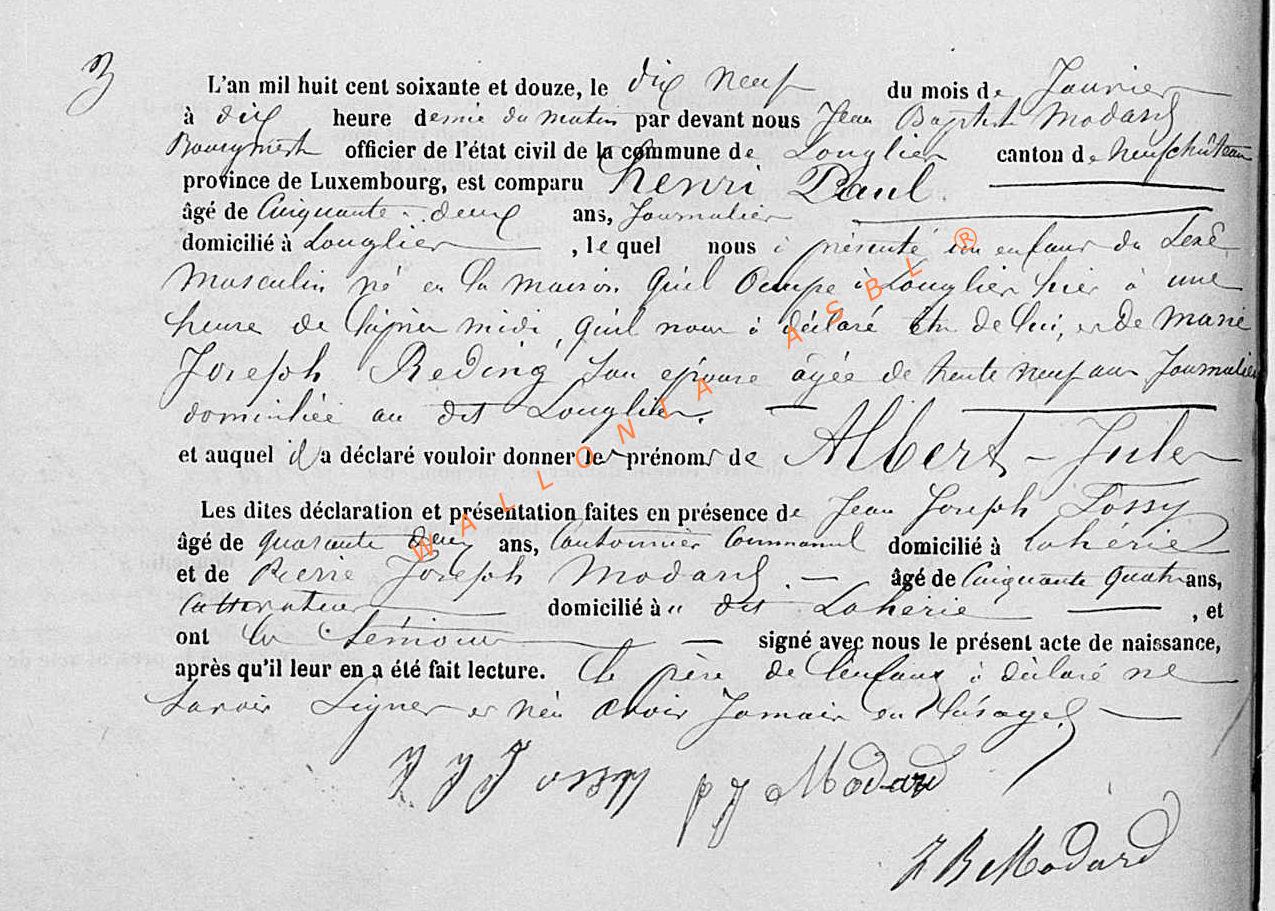 3
L'an mil huit cent soixante et douze, le dix neuf du mois de Janvier
à dix heure demie du matin par devant nous Jean Baptiste Modard
Bourgmestre officier de l'état civil de la commune de Longlier canton de Neufchâteau
province de Luxembourg, est comparu henri Paul
âgé de Cinquante-deux ans, Journalier
domicilié à Longlier, lequel nous à présenté un enfant du Sexe
Masculin né en la maison qu'il Occupe à Longlier hier à une
heure de l'après midi, qu'il nous à déclaré être de lui, et de Marie
Joseph Reding, son epouse âgée de trente neuf ans Journalière
domiciliée au dit Longlier.
et auquel il a déclaré vouloir donner les prénoms de Albert-Jules
Les dites déclaration et présentation faites en présence de Jean Joseph Jossy
âgé de quarante deux ans, Cantonnier Communal domicilié à Lahérie
et de Pierre Joseph Modard. âgé de Cinquante quatre ans,
Cultivateur domicilié à " dit Laherie, et
ont les témoins signé avec nous le présent acte de naissance,
après qu'il leur en a été fait lecture. Le père de l'enfant à déclaré ne
Savoir Signer et n'en avoir Jamais eu l'usage.
J J Jossy pJ Modard
J B Modard
WALLONIA ASBL ®